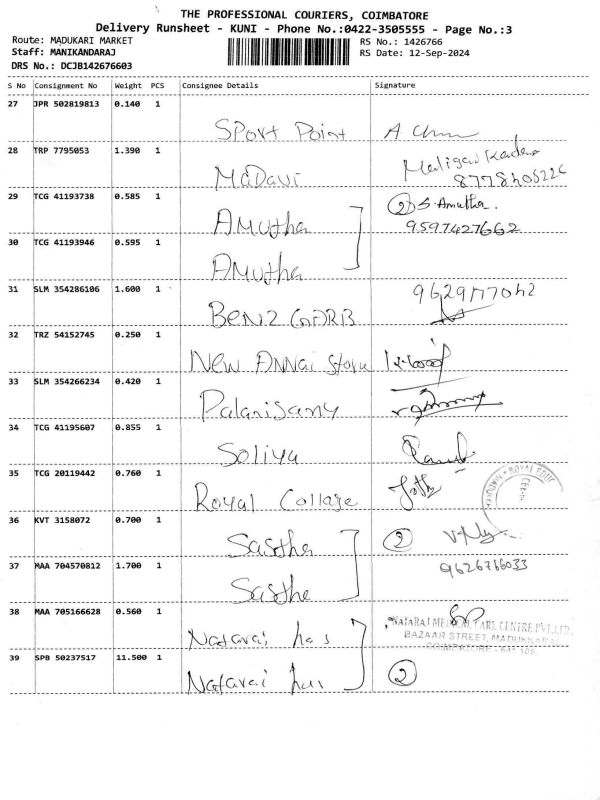 THE PROFESSIONAL COURIERS, COIMBATORE
Delivery Runsheet - KUNI - Phone No.:0422-3505555 - Page No.:3
Route: MADUKARI MARKET
RS No.: 1426766
Staff: MANIKANDARAJ
RS Date: 12-Sep-2024
DRS No.: DCJB142676603
S No Consignment No Weight PCS Consignee Details Signature
27 JPR 502819813 0.140 1
SPort Point
28 TRP 7795053 1.390 1
MaDavi
29 TCG 41193738 0.585 1
AMutha 2 S. Amutha.
9597427662
30 TCG 41193946 0.595 1
AMutha
31 SLM 354286106 1.600 1
BeNZ GARB
32 TRZ 54152745 0.250 1
New ANNai Store
33 SLM 354266234 0.420 1
Palanisamy
34 TCG 41195607 0.855 1
Soliya
35 TCG 20119442 0.760 1
Royal Collage
36 KVT 3158072 0.700 1
Sastha 2
37 MAA 704570812 1.700 1
9626766033
Sastha
38 MAA 705166628 0.560 1
NATARAJ CARE CENTRE PVT.LTD.
BAZAAR STREET, MADUKKARAI
Natarai has
39 SPB 50237517 11.500 1
Natarai has 2